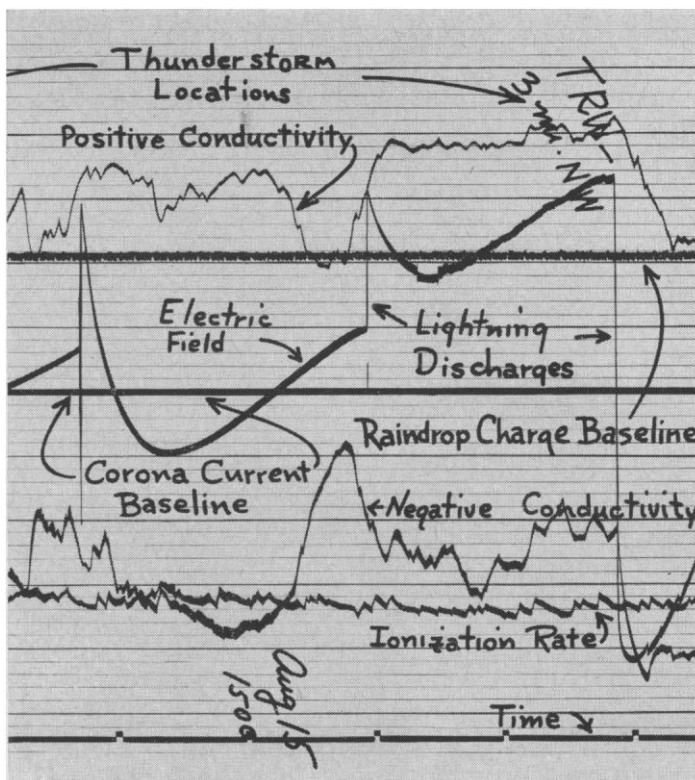 Thunderstorm
Locations
TRW-
3 mi. NW
Positive Conductivity
Electric
Field
Lightning
Discharges
Raindrop Charge Baseline
Corona Current
Baseline
Negative Conductivity
Ionization Rate
Aug 15
1500
Time